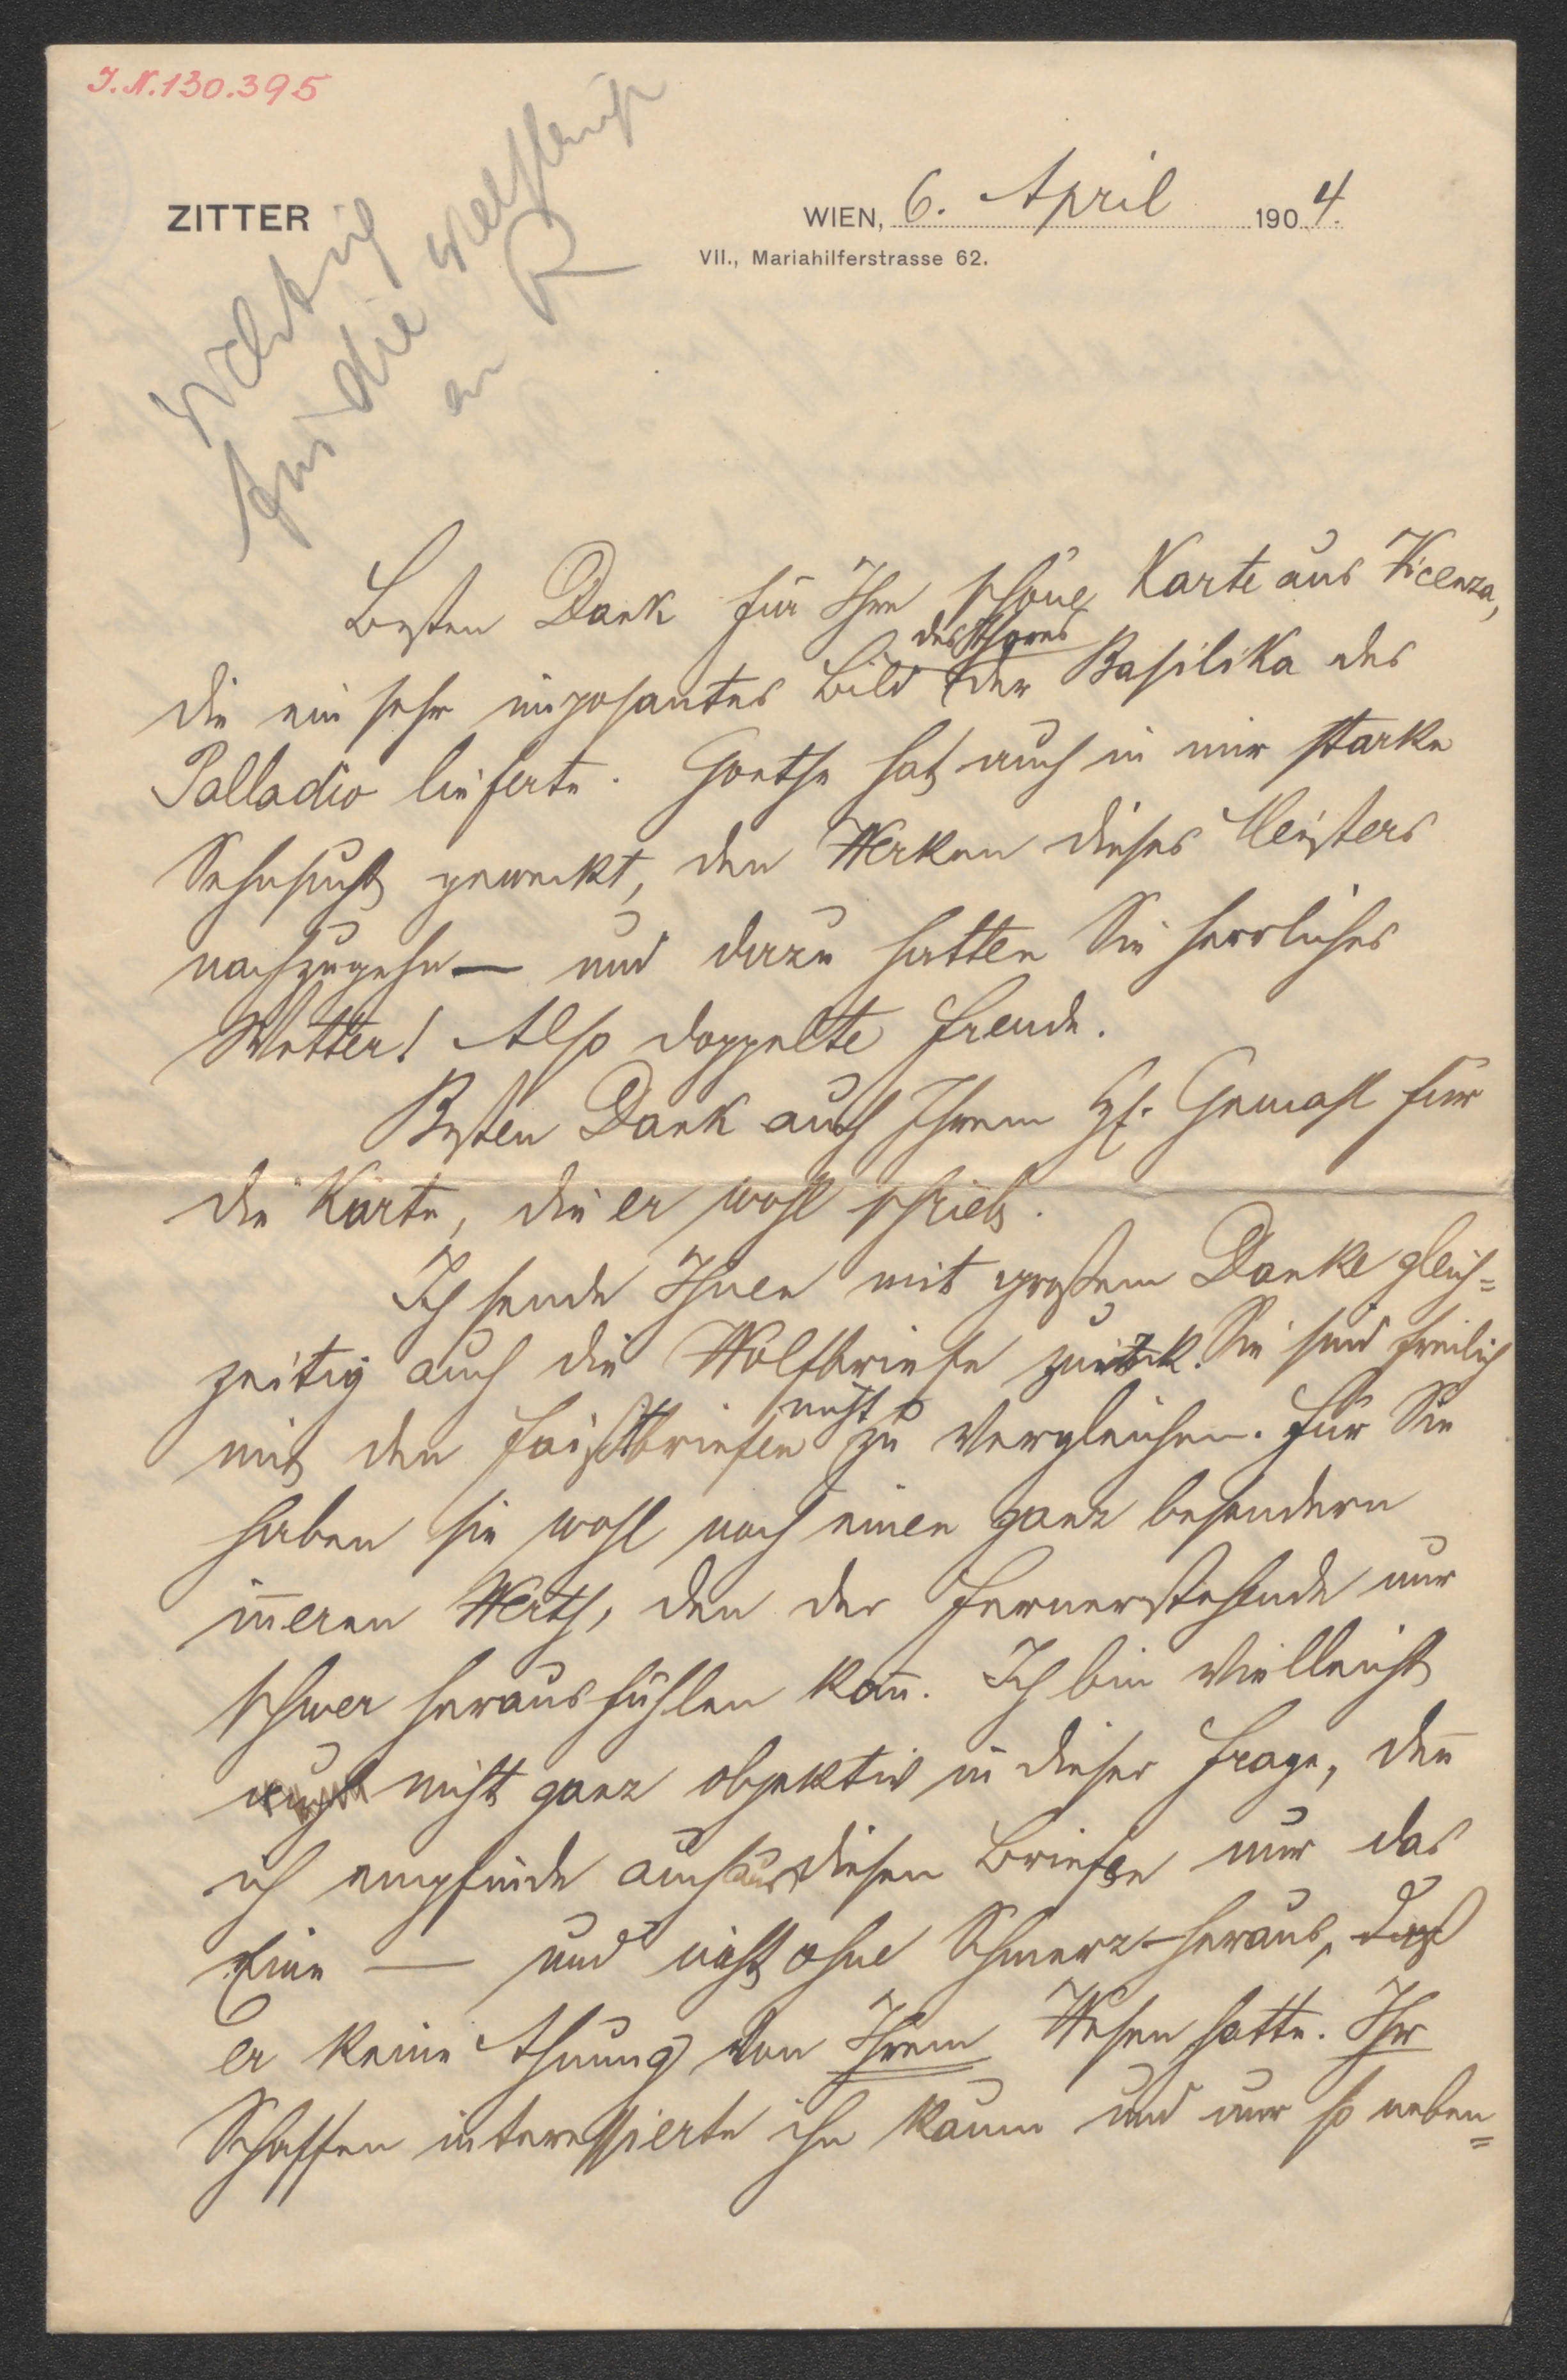 I.N.130.395
Wichtig
für die
an R
ZITTER
WIEN, 6. April 1904.
VII., Mariahilferstrasse 62.
Besten Dank für Ihre schöne Karte aus Vicenza,
die ein sehr imposantes Bild des Thores der Basilika des
Palladio lieferte. Goethe hat auch in mir starke
Sehnsucht geweckt, den Werken dieses Meisters
nachzugehn — und dazu hatten Sie herrliches
Wetter! Also doppelte Freude.
Besten Dank auch Ihrem H. Gemahl für
die Karte, die er wohl schrieb.
Ich sende Ihnen mit großem Danke gleich=
zeitig auch die Wolfbriefe zurück. Sie sind freilich
mit den Faißtbriefen nicht zu vergleichen. Für Sie
haben sie wohl noch einen ganz besondern
iñeren Werth, den der Fernerstehende nur
schwer herausfühlen kañ. Ich bin vielleicht
auch nicht ganz objektiv in dieser Frage, deñ
ich empfinde auch aus diesen Briefen nur das
Eine — und nicht ohne Schmerz — heraus, daß
er keine Ahnung von Ihrem Wesen hatte. Ihr
Schaffen interessierte ihn kaum und nur so neben=